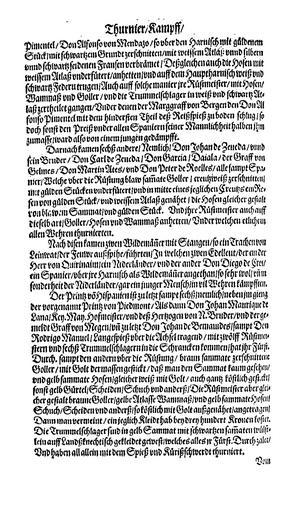 Thurnier/Kampff/
Pimentel/Don Alfonso von Mendozo/so vber den Harnisch mit güldenem
Stück/mit schwartzem Grundt zerschnitten/mit weissem Atlaß vmb silbern
vnnd schwartz seidenen Fransen verbrämet/Deßgleichen auch die Hosen mit
weissem Atlaß vnderfütert/anhetten/vnd auff dem Haupt harnisch weiß vnd
schwartz Federn trugen/Auch auff solche manier jre Rüsmeister/mit Hosen/
Wammaß vnd Goller/vnd die Trummelschlager in weiß vnd schwartz At-
laß zertheilet gangen/Vnder denen der Marggraff von Bergen den Don Al-
fonso Pimentel mit dem hindersten Theil deß Reißspieß zu boden schlug/so
doch sonst den Preiß vnder allen Spaniern seiner Mannlichheit halben jhm
zumasse/ward also von einem jungen gedämpfft.
Darnach kamen sechs andere/Nemlich/Don Johan de Zeneda/vnnd
sein Bruder/Don Carl de Zeneda/Don Garcia/Daiala/der Graff von
Gelmes/Don Martin Ales/vnd Don Peter de Roelles/alle sampt Spa-
nier/Welche vber die Rüstung blaw samate Goller/creutzweiß zerschnitten
mit gülden Stücken vnderfütert/vnd in mitte eines jeglichen Creutz ein Ro-
sen von gülden Stück/vnd weissem Atlaß genähet/die Hosen gleicher gestalt
von blawem Sammat/vnd gülden Stück. Vnd jhre Rüsmeister auch auff
dieselb art/Goller/Hosen vnd Wammaß anhetten/Vnder welchen etlichen
allen Wehren thurnierten.
Nach disen kamen zwen Wildemäner mit Stangen/so ein Trachen von
Leinwat/der Fenwr außspihe/führten/In welchem zwen Edelleut/der an der
Herr von Quirinaim/ein Niderländer/vnd der ander Don Diego de Leri/
ein Spanier/vber jre Harnisch als Wildemäner angethan/so sehr wol/vnn
sonderheit der Niderländer/gar ein junger Mensch/in vil Wehren kämpfften.
Der Printz vō Hispanien ist zu letzt sampt sechß/nemlich/neben jungang
der vorgenannte Printz von Piedmont/Als dann Don Johan Manrique de
Lana/Key. May. Hofmeister/vnd deß Hertzogen von N. Bruder/vnd der ge-
meldt Graff von Megen/vñ zu letzt Don Johan de Bernaudes/sampt Don
Rodrigo Manuel/Lange spieß vber die Achsel tragend/mit zwölff Rüsmei-
stern vnd sechß Trummelschlagern in die Schrancken kommen/hatte Fürst.
Durch. sampt den andern vber die Rüstung/braun sammate zerschnittene
Goller/mit Golt dermassen gestickt/daß man den Sammat kaum gesehen/
vnd gelb sammate Hosen/gleicher weiß mit Golt/auch gantz köstlich gestickt
sampt gelb Gürtel/Scheiden/Schuch vnd anders/Die Rüsmeister aber glei-
cher gestalt braune Goller/gelbe Atlasse Wammaß/vnd gelb sammate Hosen/
Schuch/Scheiden vnd anders/so köstlich mit Golt außgenähet/angetragen/
Dann man vermeint/ein jeglich Kleid hab bey drey hundert Kronen kostet.
Die Trummelschlager sind in gelb Sammat mit schwartzem samaten wülst-
lein auff Landsknechtisch gekleidet gewest/welches alles jr Fürst. Durch. zalet/
Vnd haben all allein mit dem Spieß vnd Kürißschwerdt thurniert.
Von